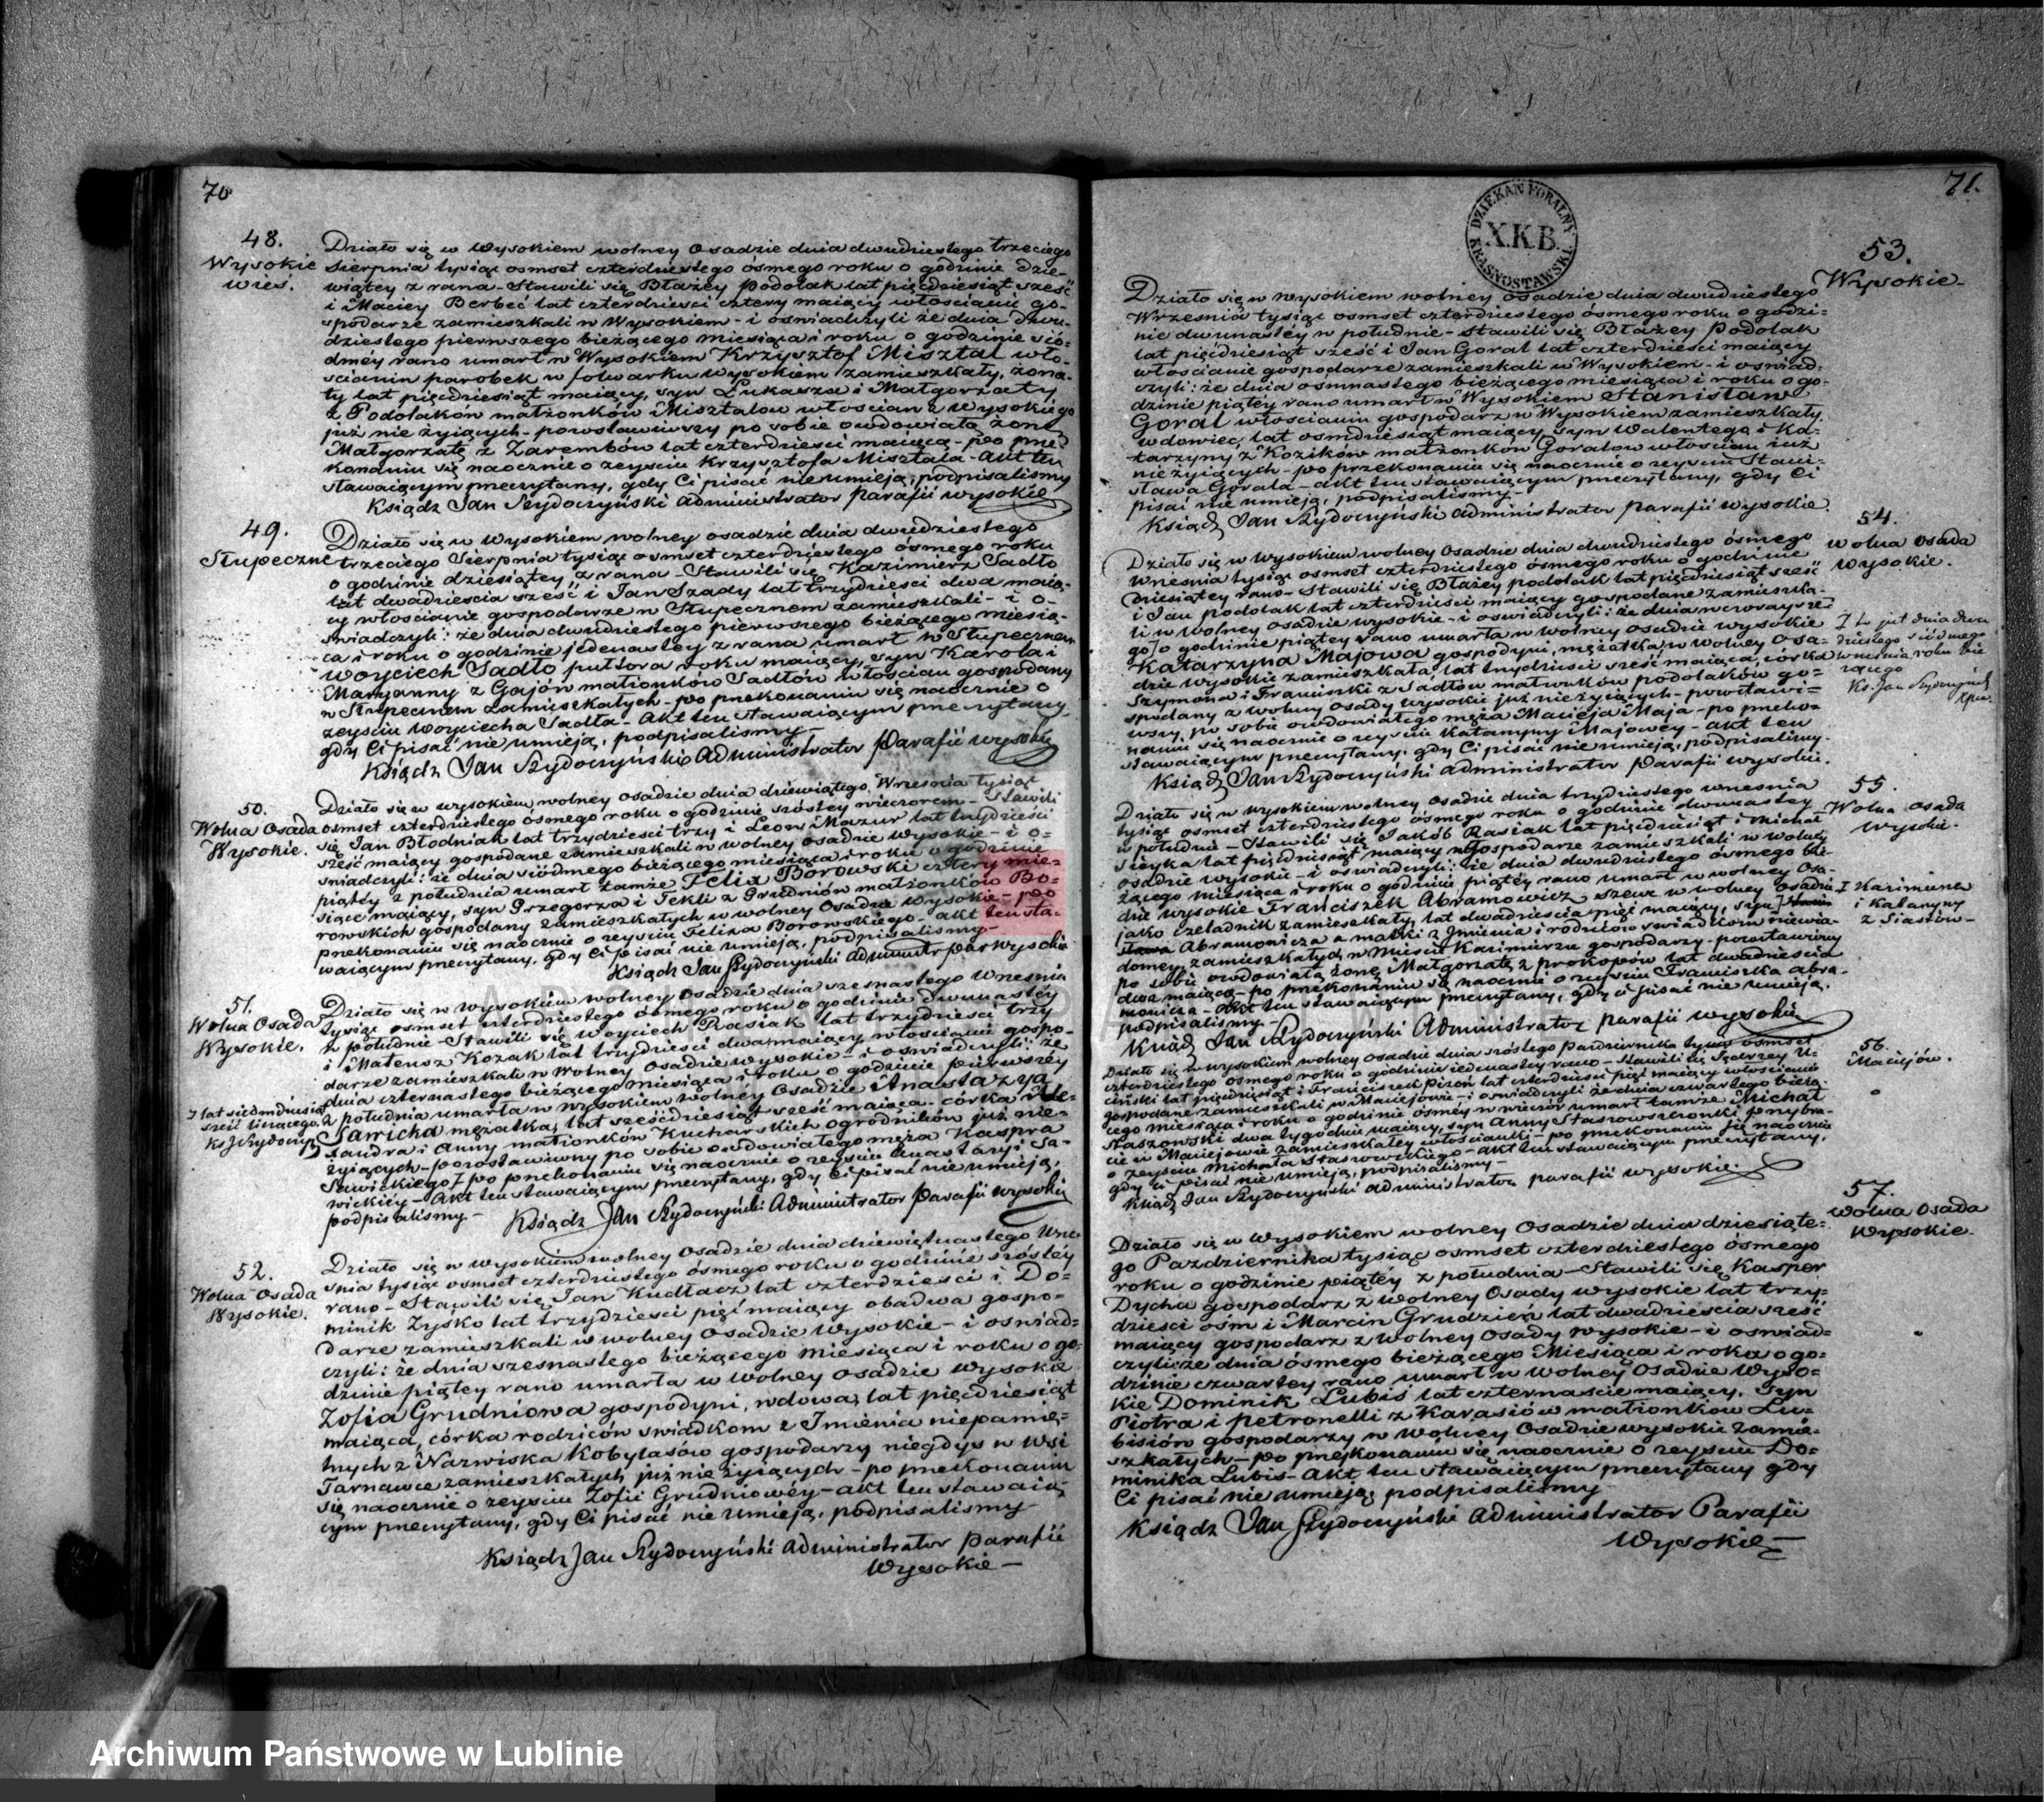 70
48.
Wysokie
wieś.
Działo się w Wysokiem wolney Osadzie dnia dwudziestego trzeciego
Sierpnia tysiąc osmset czterdziestego ósmego roku o godzinie dzie-
wiątey z rana - Stawili się Błażey Podolak lat pięćdziesiąt sześć
i Maciey Berbeć lat czterdzieści cztery maiący włościanie go-
spodarze zamieszkali w Wysokiem - i oswiadczyli że dnia dwu-
dziestego pierwszego bieżącego miesiąca i roku o godzinie sió-
dméy rano umarł w Wysokiem Krzysztof Misztal wło-
scianin parobek w folwarku wysokiem zamieszkały, żona-
ty lat pięćdziesiąt maiący, syn Łukasza i Małgorzaty
z Podolaków małżonków Misztalow włościan z wysokiego
już nie żyiących - pozostawiwszy po sobie owdowiałą żonę
Małgorzatę z Zarembów lat czterdzieści maiącą - po prze-
konaniu się naocznie o zeysciu Krzysztofa Misztala - Akt ten
stawaiącym przeczytany, gdy Ci pisać nieumieią, podpisalismy
Ksiądz Jan Szydoczyński Administrator parafii wysokie
49.
Słupeczne
Działo się w Wysokiem wolney osadzie dnia dwudziestego
trzeciego Sierpnia tysiąc osmset czterdziestego ósmego roku
o godzinie dziesiątey z rana - Stawili się Kazimierz Sadło
lat dwadzieścia sześć i Jan Szady lat trzydzieści dwa maią-
cy włościanie gospodarze w Słupecznem zamieszkali - i o-
swiadczyli: że dnia dwudziestego pierwszego bieżącego miesią-
ca i roku o godzinie jedenastey z rana umarł w Słupecznem
Woyciech Sadło pułtora roku maiący, syn Karola i
Maryanny z Gajów małżonków Sadłów włościan gospodarzy
w Słupecznem zamieszkałych - po przekonaniu się naocznie o
zeysciu Woyciecha Sadła - Akt ten stawaiącym przeczytany,
gdy Ci pisać nie umieią, podpisalismy -
Ksiądz Jan Szydoczyński Administrator Parafii wysokie
50.
Wolna Osada
Wysokie.
Działo się w wysokiem wolney osadzie dnia dziewiątego Września tysiąc
osmset czterdziestego ósmego roku o godzinie szóstey wieczorem - Stawili
się Jan Błodniak lat trzydzieści trzy i Leon Mazur lat trzydzieści
sześć maiący gospodarze zamieszkali w wolney osadzie wysokie - i o-
swiadczyli: że dnia siódmego bieżącego miesiąca i roku o godzinie
piątéy z południa umarł tamże Felix Borowski cztery mie-
siące maiący, syn Grzegorza i Tekli z Grudniów małżonków Bo-
rowskich gospodarzy zamieszkałych w wolney Osadzie wysokie - po
przekonaniu się naocznie o zeysciu Felixa Borowskiego - akt ten sta-
waiącym przeczytany, gdy Ci pisać nie umieią, podpisalismy -
Ksiądz Jan Szydoczyński administr par wysokie
51.
Wolna Osada
Wysokie.
Działo się w wysokiem wolney Osadzie dnia szesnastego Września
tysiąc osmset czterdziestego ósmego roku o godzinie dwunastéy
w południe - Stawili się Woyciech Rasiak lat trzydzieści trzy
i Mateusz Kozak lat trzydzieści dwa maiący włościanie gospo-
darze zamieszkali w Wolney Osadzie wysokie - i oswiadczyli: że
dnia czternastego bieżącego miesiąca i roku o godzinie pierwszey
z południa umarła w wysokiem wolney Osadzie Anastazya
Sawicka mężatka, lat sześćdziesiąt sześć maiąca - córka Ale-
xandra i Anny małżonków Kucharskich ogrodników już nie-
żyiących - pozostawiwszy po sobie owdowiałego męża Kaspra
Sawickiego ⁊ po przekonaniu się naocznie o zeysciu Anastazyi Sa-
wickiey - Akt ten stawaiącym przeczytany, gdy Ci pisać nie umieią,
podpisalismy -
⁊ lat siedmdziesiąt
sześć liczącego.
Ks J Szydoczyń
Ksiądz Jan Szydoczyński Administrator Parafii wysokie
52.
Wolna Osada
Wysokie.
Działo się w wysokiem wolney Osadzie dnia dziewiętnastego Wrze-
snia tysiąc osmset czterdziestego ósmego roku o godzinie szóstéy
rano - Stawili się Jan Kudłacz lat czterdzieści i Do-
minik Zyśko lat trzydzieści pięć maiący obadwa gospo-
darze zamieszkali w wolney Osadzie Wysokie - i oswiad-
czyli: że dnia szesnastego bieżącego miesiąca i roku o go-
dzinie piątey rano umarła w wolney osadzie wysokie
Zofia Grudniowa gospodyni, wdowa, lat pięćdziesiąt
maiąca, córka rodziców swiadkom z Imienia niepamię-
tnych z Nazwiska Kobylasów gospodarzy niegdyś w wsi
Tarnawce zamieszkałych już nie żyiących - po przekonaniu
się naocznie o zeysciu Zofii Grudniowéy - akt ten stawaią-
cym przeczytany, gdy Ci pisać nie umieią, podpisalismy
Ksiądz Jan Szydoczyński Administrator Parafii
Wysokie -
71.
DZIEKAN FORALNY
X.K.B.
KRASNOSTAWSKI
53.
Wysokie -
Działo się w wysokiem wolney osadzie dnia dwudziestego
Września tysiąc osmset czterdziestego ósmego roku o godzi-
nie dwunastéy w południe - Stawili się Błażey Podolak
lat pięćdziesiąt sześć i Jan Goral lat czterdzieści maiący
włościanie gospodarze zamieszkali w Wysokiem - i oswiad-
czyli: że dnia osmnastego bieżącego miesiąca i roku o go-
dzinie piątéy rano umarł w Wysokiem Stanisław
Goral włościanin gospodarz w Wysokiem zamieszkały
wdowiec, lat osmdziesiąt maiący, syn Walentego i Ka-
tarzyny z Kozików małżonków Goralow włościan już
nie żyiących - po przekonaniu się naocznie o zeysciu Stani-
sława Gorala - akt ten stawaiącym przeczytany, gdy Ci
pisać nie umieią, podpisalismy -
Ksiądz Jan Szydoczyński administrator parafii wysokie
54.
Wolna osada
Wysokie.
Działo się w Wysokiem wolney Osadzie dnia dwudziestego ósmego
Września tysiąc osmset czterdziestego ósmego roku o godzinie
dziesiątey rano - Stawili się Błażey Podolak lat pięćdziesiąt sześć
i Jan Podolak lat czterdzieści maiący gospodarze zamieszka-
li w wolney osadzie wysokie - i oswiadczyli: że dnia wczorayszé-
go ⁊ o godzinie piątey rano umarła w wolney osadzie wysokie
Katarzyna Majowa gospodyni, mężatka, w wolney Osa-
dzie wysokie zamieszkała, lat trzydzieści sześć maiąca, córka
Szymona i Franciszki z Sadłów małżonków Podolaków go-
spodarzy z wolney osady wysokie już nie żyiących - pozostawi-
wszy po sobie owdowiałego męża Macieja Maja - po przeko-
naniu się naocznie o zeysciu Katarzyny Majowey - akt ten
stawaiącym przeczytany, gdy Ci pisać nie umieią, podpisalismy.
⁊ to jest dnia dwu
dziestego siódmego
września roku bie
żącego
Ks. Jan Szydoczyński
Ksiądz Jan Szydoczyński administrator Parafii wysokie.
55.
Wolna osada
wysokie.
Działo się w wysokiem wolney Osadzie dnia trzydziestego września
tysiąc osmset czterdziestego ósmego roku o godzinie dwunastéy
w południe - Stawili się Jakób Rasiak lat pięćdziesiąt i Michał
Sieyka lat pięćdziesiąt maiący gospodarze zamieszkali w wolney
osadzie wysokie - i oswiadczyli: że dnia dwudziestego ósmego bie-
żącego miesiąca i roku o godzinie piątéy rano umarł w wolney Osa-
dzie wysokie Franciszek Abramowicz szewc w wolney osadzie
jako czeladnik zamieszkały, lat dwadzieścia pięć maiący, syn ⁊
Abramowicza a matki z Imienia i rodziców swiadkom niewia-
domey, zamieszkałych w Mieście Kazimierzu gospodarzy - pozostawiwszy
po sobie owdowiałą żonę Małgorzatę z Prokopów lat dwadzieścia
dwa maiącą - po przekonaniu się naocznie o zeysciu Franciszka Abra-
mowicza - Akt ten stawaiącym przeczytany, gdy ci pisać nie umieią,
podpisalismy -
⁊ Kazimierza
i Katarzyny
z Siastów -
Ksiądz Jan Szydoczyński Administrator parafii wysokie
56.
Maciejów.
Działo się w wysokiem wolney osadzie dnia szóstego Października tysiąc osmset
czterdziestego ósmego roku o godzinie jedenastey rano - Stawili się Jędrzey U-
ciński lat pięćdziesiąt i Franciszek Pizoń lat czterdzieści pięć maiący włościanie
gospodarze zamieszkali w Maciejowie - i oswiadczyli że dnia czwartego bieżą-
cego miesiąca i roku o godzinie ósméy w wieczór umarł tamże Michał
Staszowski dwa tygodnie maiący, syn Anny Staszowszczonki przybra-
cie w Maciejowie zamieszkałey włościanki - po przekonaniu się naocznie
o zeysciu Michała Staszowskiego - akt ten stawaiącym przeczytany,
gdy ci pisać nie umieią, podpisalismy -
Ksiądz Jan Szydoczyński administrator parafii wysokie.
57.
Wolna Osada
Wysokie.
Działo się w Wysokiem wolney Osadzie dnia dziesiąte-
go Pazdziernika tysiąc osmset czterdziestego ósmego
roku o godzinie piątéy z południa - Stawili się Kasper
Dycha gospodarz z wolney Osady wysokie lat trzy-
dzieści ośm i Marcin Grudzień lat dwadzieścia sześć
maiący gospodarz z wolney Osady wysokie - i oswiad-
czyli: że dnia ósmego bieżącego Miesiąca i roku o go-
dzinie czwartey rano umarł w wolney Osadzie Wyso-
kie Dominik Lubiś lat czternaście maiący, Syn
Piotra i Petronelli z Karasiów małżonkow Lu-
bisiów gospodarzy w wolney Osadzie wysokie zamie-
szkałych - po przekonaniu się naocznie o zeysciu Do-
minika Lubis - Akt ten stawaiącym przeczytany gdy
Ci pisać nie umieią, podpisalismy
Ksiądz Jan Szydoczyński Administrator Parafii
Wysokie
Archiwum Państwowe w Lublinie